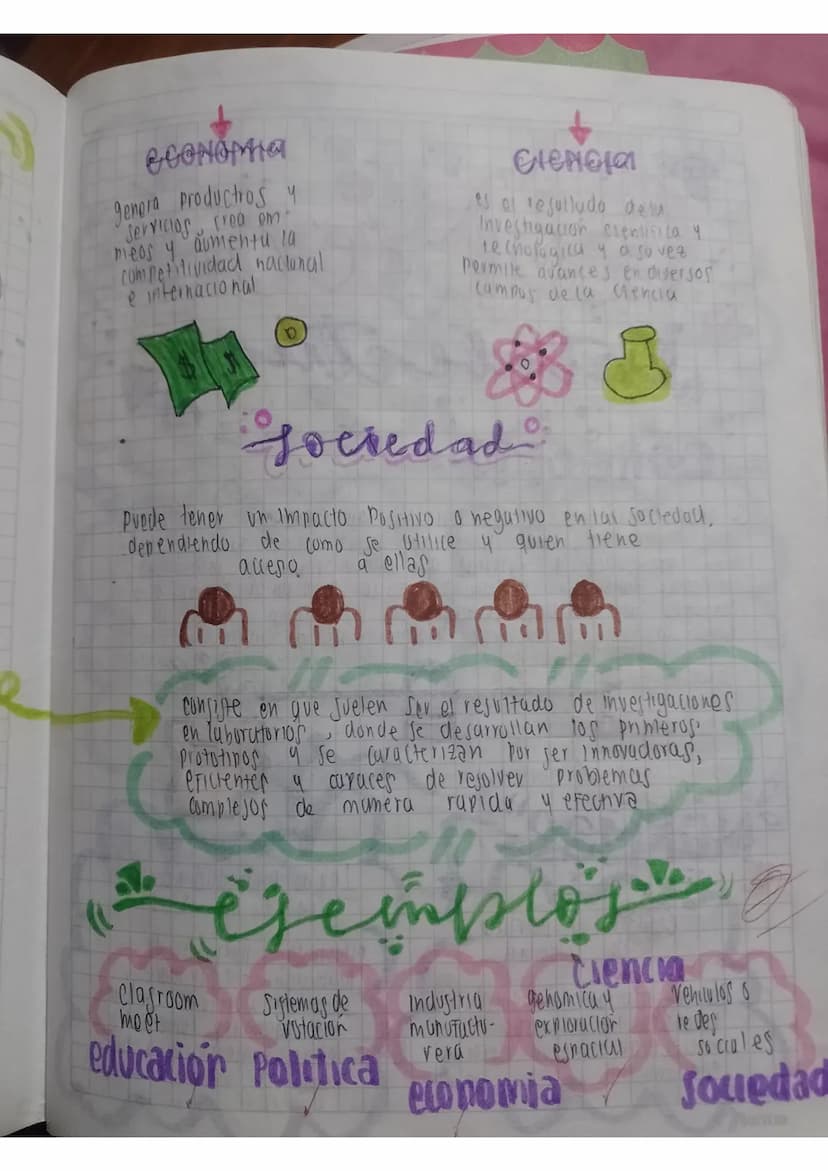 ECONOMIA
genera productros y
servicios, crea em-
pleos y aumenta la
competitividad nacional
e internacional
CIENCIA
es el resultado de la
investigación cientifica y
tecnológica y a su vez
permite avances en diversos
campos de la ciencia
$ $
sociedad
puede tener un impacto positivo o negativo en las sociedad,
dependiendo de como se utilice y quien tiene
acceso a ellas
consiste en que suelen ser el resultado de investigaciones
en laboratorios, donde se desarrollan los primeros
prototipos y se caracterizan por ser innovadoras,
eficientes y capaces de resolver problemas
complejos de manera rapida y efectiva
ejemplos
clasroom
meet
educación
sistemas de
votación
Politica
industria
manufactu-
rera
economia
Ciencia
genomica y
exploracion
espacial
vehiculos o
redes
sociales
sociedad